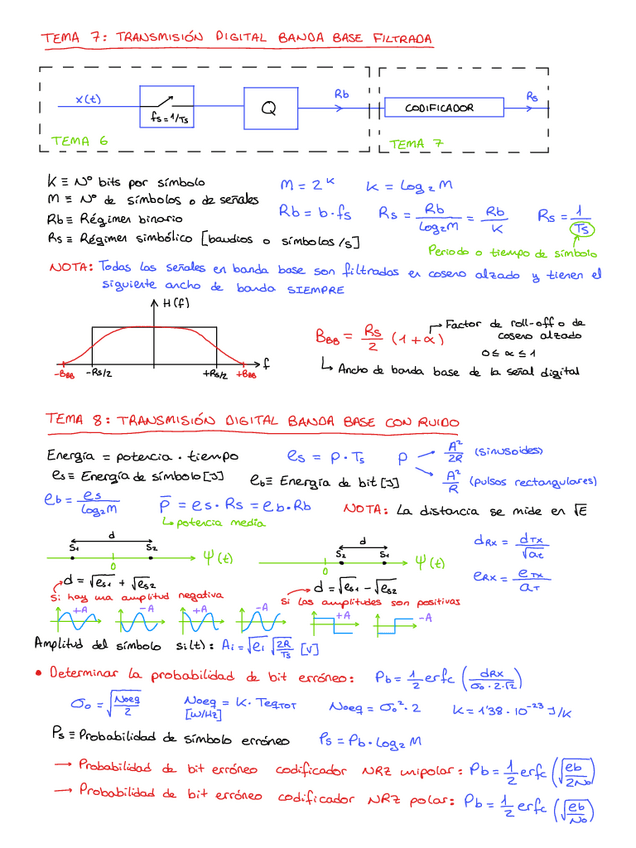 TEMA 7: TRANSMISIÓN DIGITAL BANDA BASE FILTRADA
x(t)
fs = 1/Ts
Q
Rb
CODIFICADOR
Rs
TEMA 6
TEMA 7
K ≡ Nº bits por símbolo
M = 2^K
K = Log₂M
M ≡ Nº de símbolos o de señales
Rb ≡ Régimen binario
Rb = b·fs
Rs = Rb/Log₂M = Rb/K
Rs = 1/Ts
Rs ≡ Régimen simbólico [baudios o símbolos/s]
Periodo o tiempo de símbolo
NOTA: Todas las señales en banda base son filtradas en coseno alzado y tienen el
siguiente ancho de banda SIEMPRE
H(f)
f
-BBB
-Rs/2
+Rs/2
+BBB
BBB = Rs/2 (1+α)
Factor de roll-off o de
coseno alzado
0 ≤ α ≤ 1
Ancho de banda base de la señal digital
TEMA 8: TRANSMISIÓN DIGITAL BANDA BASE CON RUIDO
Energía = potencia · tiempo
es = p·Ts
p
A²/2R (sinusoides)
A²/R (pulsos rectangulares)
es ≡ Energía de símbolo [J]
eb ≡ Energía de bit [J]
eb = es/log₂M
p̄ = es·Rs = eb·Rb
potencia media
NOTA: La distancia se mide en √E
d
S1
S2
0
Ψ(t)
d = √es1 + √es2
Si hay una amplitud negativa
d
S2
S1
0
Ψ(t)
d = √es1 - √es2
Si las amplitudes son positivas
dRx = dTx/√at
eRx = eTx/aT
+A
-A
+A
-A
+A
-A
Amplitud del símbolo si(t): Ai = √ei √2R/Ts [V]
• Determinar la probabilidad de bit erróneo: Pb = 1/2 erfc (dRx/σo·2·√2)
σo = √Noeq/2
Noeq = K·TeqTOT
[W/Hz]
Noeq = σo²·2
K = 1'38·10⁻²³ J/K
Ps ≡ Probabilidad de símbolo erróneo
Ps = Pb·Log₂M
→ Probabilidad de bit erróneo codificador NRZ unipolar: Pb = 1/2 erfc (√eb/2No)
→ Probabilidad de bit erróneo codificador NRZ polar: Pb = 1/2 erfc (√eb/No)